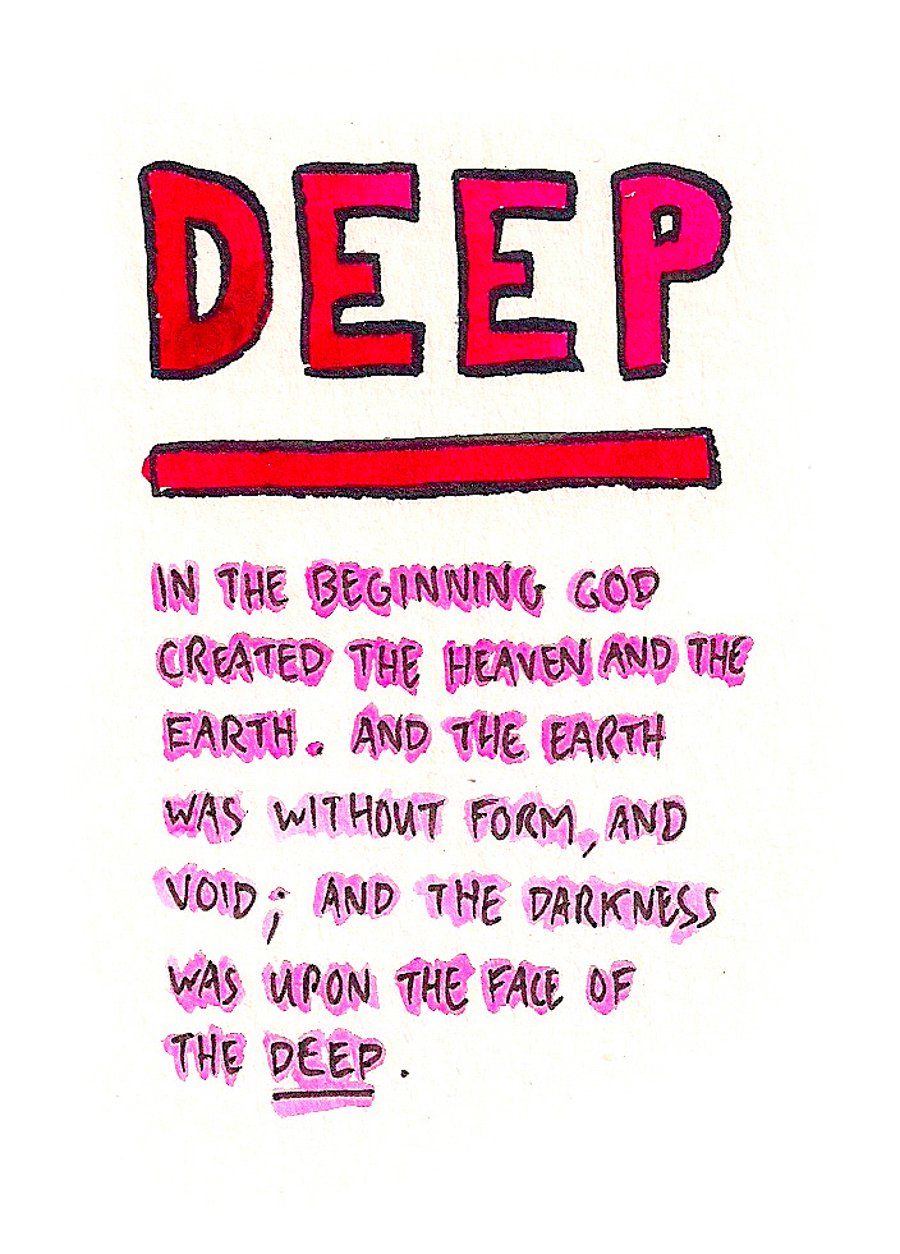 DEEP
IN THE BEGINNING GOD
CREATED THE HEAVEN AND THE
EARTH. AND THE EARTH
WAS WITHOUT FORM, AND
VOID; AND THE DARKNESS
WAS UPON THE FACE OF
THE DEEP.